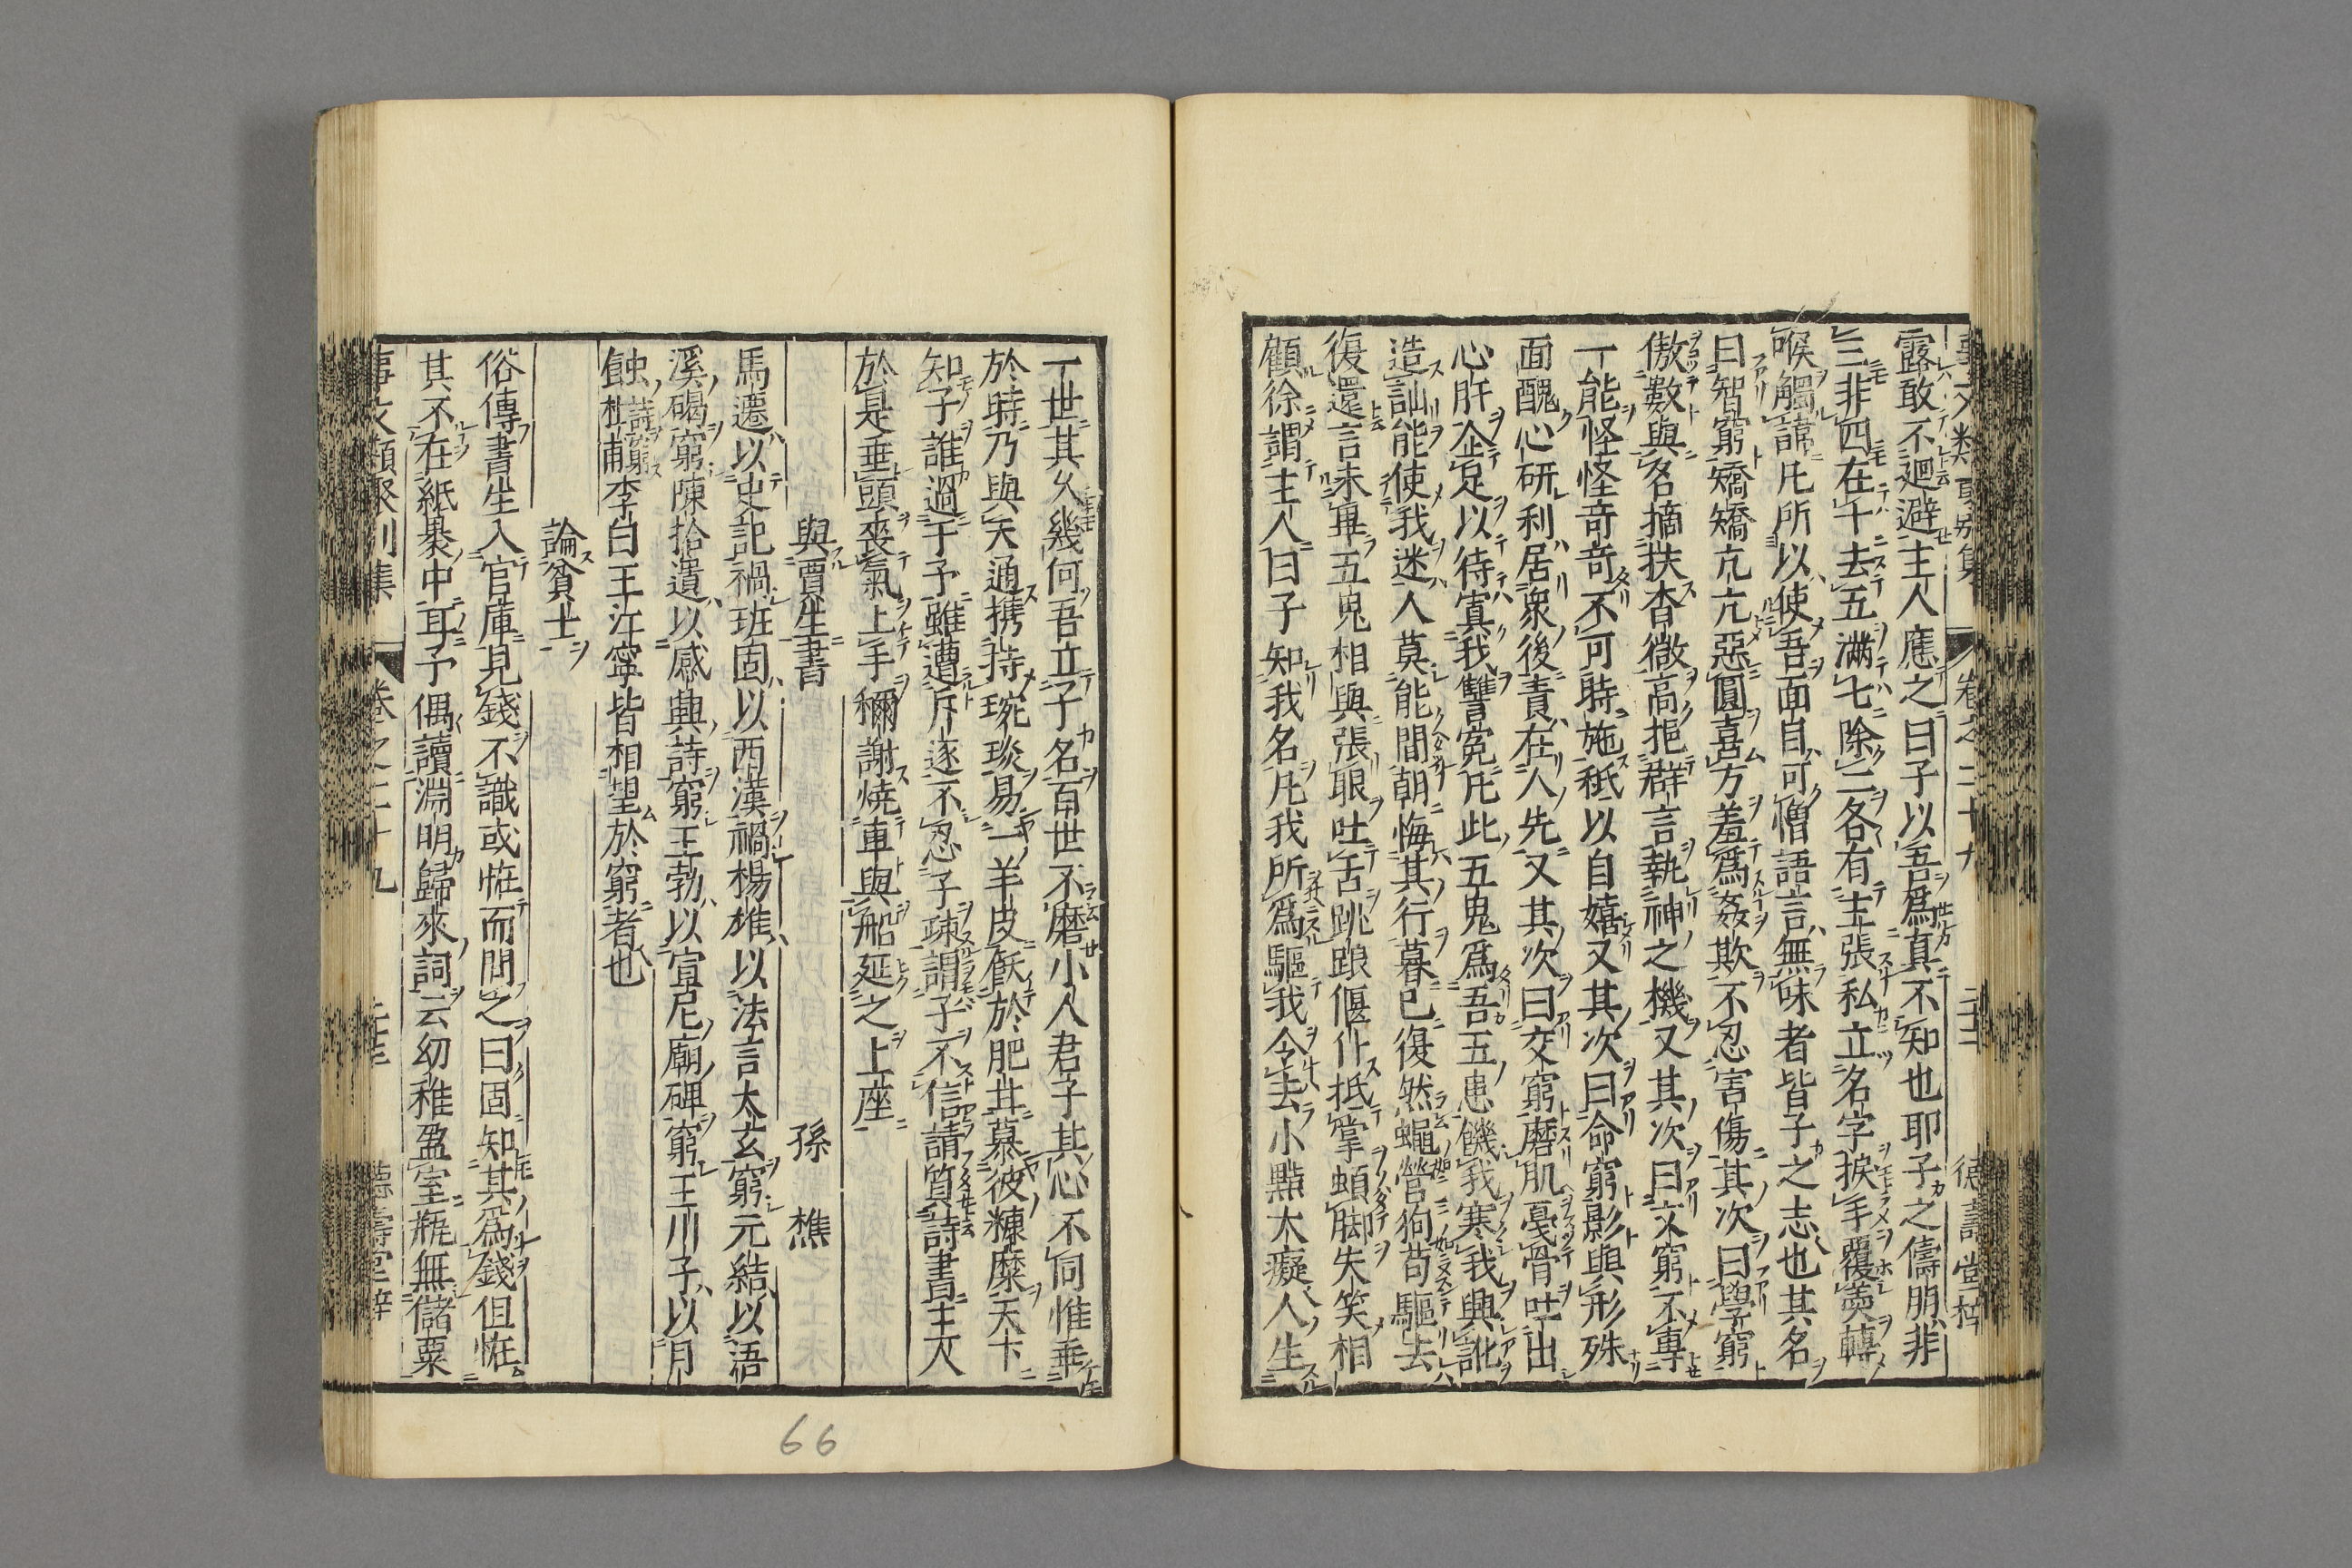 事文類聚別集 卷之二十九 德壽堂梓
露敢不廻避主人應之曰子以吾爲真不知也耶子之儔朋非
三非四在十去五滿七除二各有主張私立名字捩手覆羮轉
喉觸諱凡所以使吾面目可憎語言無味者皆子之志也其名
曰智窮矯矯亢亢惡圓喜方羞爲姦欺不忍害傷其次曰學窮
傲數與名摘抉杳微高挹群言執神之機又其次曰文窮不專
一能怪怪奇奇不可時施秪以自嬉又其次曰命窮影與形殊
面醜心研利居衆後責在人先又其次曰交窮磨肌戞骨吐出
心肝企足以待寘我讐寃凡此五鬼爲吾五患饑我寒我與訛
造訕能使我迷人莫能間朝悔其行暮已復然蠅營狗苟驅去
復還言未畢五鬼相與張眼吐舌跳踉偃仆抵掌頓脚失笑相
顧徐謂主人曰子知我名凡我所爲驅我令去小黠大癡人生
一世其久幾何吾立子名百世不磨小人君子其心不同惟乖
於時乃與天通携持琬琰易一羊皮飫於肥甘慕彼糠糜天下
知子誰過于予雖遭斥逐不忍子疎謂子不信請質詩書主人
於是垂頭喪氣上手稱謝燒車與船延之上座
與賈生書 孫樵
馬遷以史記禍班固以西漢禍楊雄以法言太玄窮元結以浯
溪碣窮陳拾遺以感興詩窮王勃以宣尼廟碑窮玉川子以月
蝕詩窮杜甫李白王江寧皆相望於窮者也
論貧士
俗傳書生入官庫見錢不識或恠而問之曰固知其爲錢但恠
其不在紙褁中耳予偶讀淵明歸來詞云幼稚盈室瓶無儲粟
事文類聚別集 卷之二十九 德壽堂梓
66